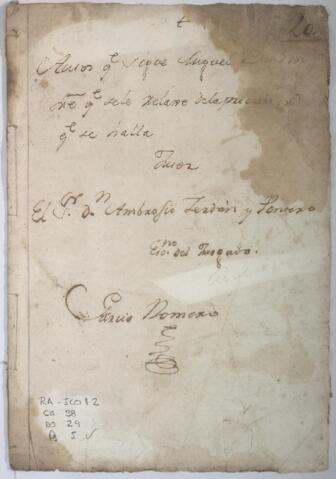 t
Autos q.e sigue Miguel
sre q.e sele relaxe dela pricion en
q.e se halla
Juez
El S.or D.n Ambrosio Zerdan y Pontero
Esc.no del Juzgado.
Garcia Romero
RA-ICO12
Ca 38
DS 29
f. 5 v